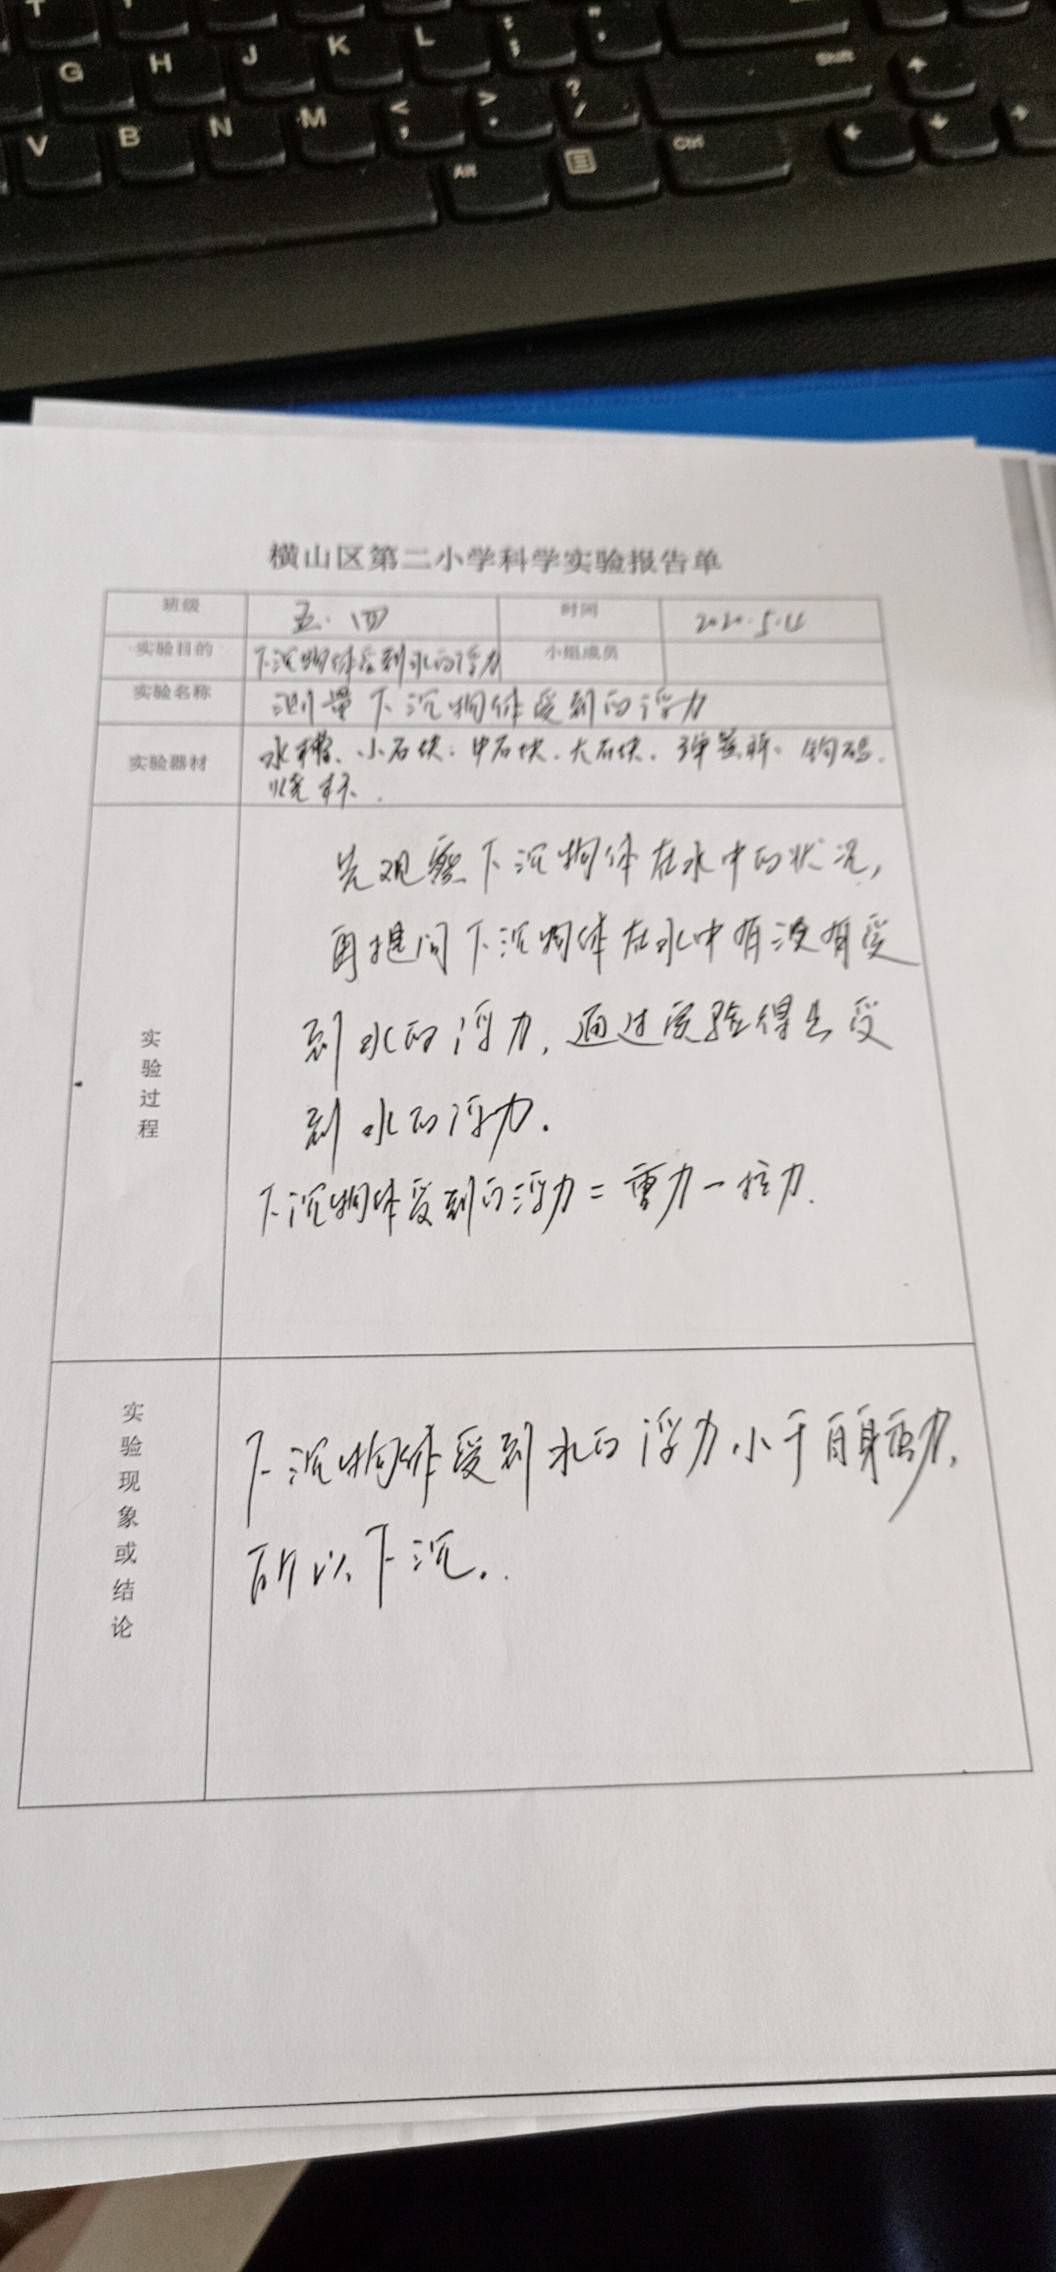 T
G H J K L : ; " '
V B N M < , > . ? / Shift
Alt Ctrl
横山区第二小学科学实验报告单
班级 五.四 时间 2020.5.
实验目的 下沉物体受到水的浮力 小组成员
实验名称 测量下沉物体受到的浮力
实验器材 水槽、小石块、中石块、大石块、弹簧秤、钩码、
烧杯.
先观察下沉物体在水中的状况,
再提问下沉物体在水中有没有受
到水的浮力,通过实验得出受
到水的浮力.
下沉物体受到的浮力=重力-拉力.
实验过程
下沉物体受到水的浮力小于自身重力,
所以下沉.
实验现象或结论